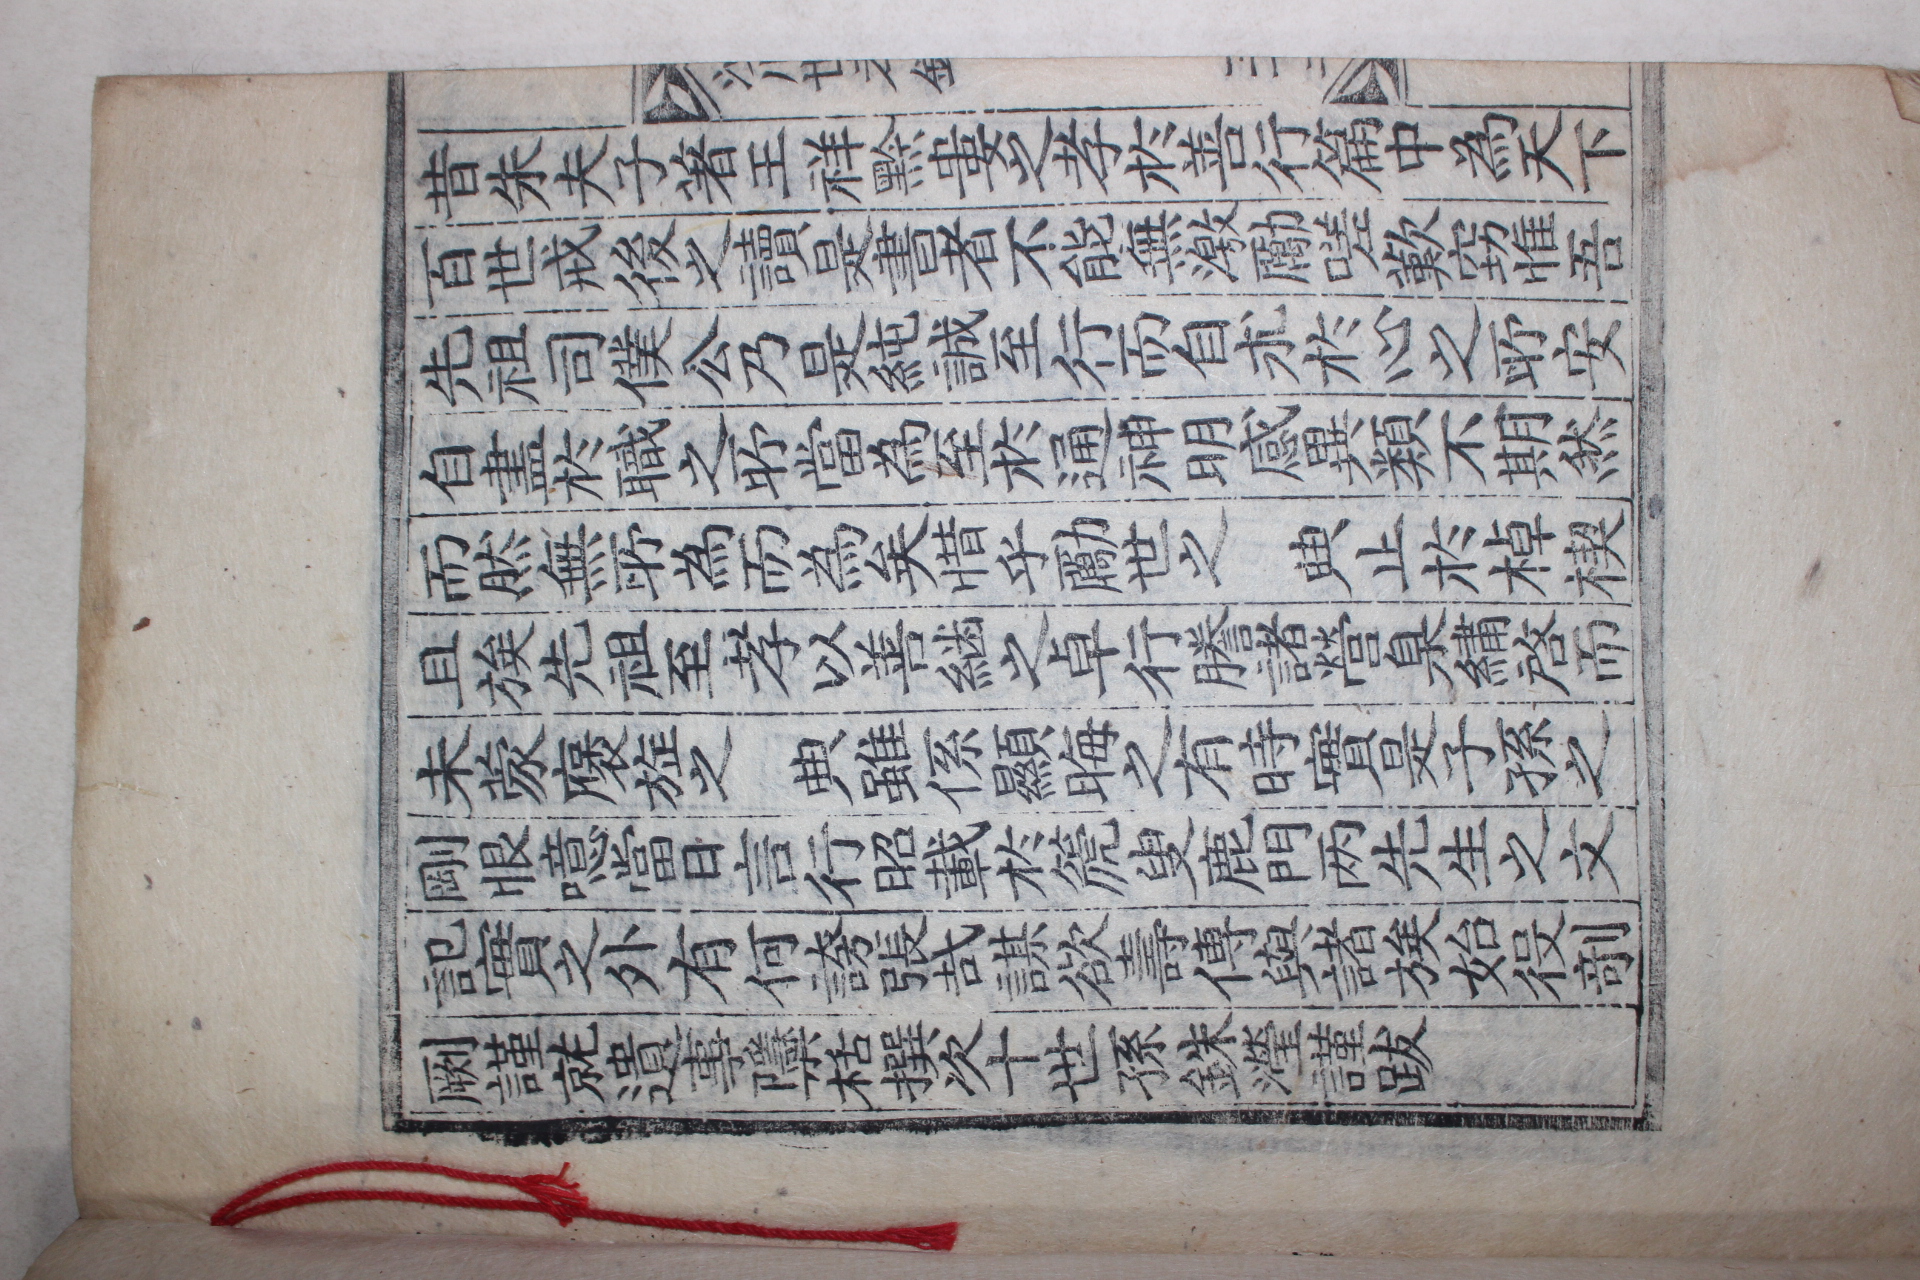 昔朱夫子著王祥黔婁之孝於善行篇中為天下
百世戒後之讀是書者不能無激勵嗟歎窃惟吾
先祖司僕公乃是純誠至行而自求於心之所安
自盡於職之所當為至於通神明感異類不期然
而然無所為而為矣惜乎勵世之　典止於棹楔
且族先祖至孝以善継之卓行謄諸營臬繡啓而
未蒙褒旌之　典雖係顯晦之有時實是子孫之
剛恨噫當日言行昭載於箎叟鹿門两先生之文
記實之外有何誇張哉謀欲壽傳與諸族始役剞
劂謹就遺事隱栝撰次十世孫銖瀅謹跋
川世孝錄